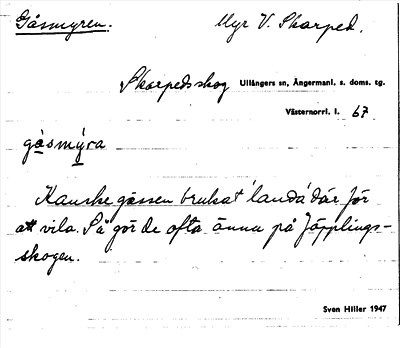 Gåsmyren. Myr V. Skarped.
Skarpedsskog Ullångers sn, Ångermanl. s. doms. tg.
Västernorrl. l. 67
gåsmýra
Kanske gässen brukat 'landa' där för
att vila. Så gör de ofta ännu på Jäpplings-
skogen.
Sven Hiller 1947